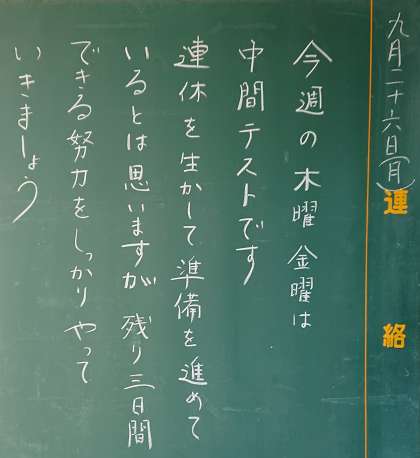 九月二十六日(月)
連絡
今週の木曜金曜は
中間テストです
連休を生かして準備を進めて
いるとは思いますが残り三日間
できる努力をしっかりやって
いきましょう